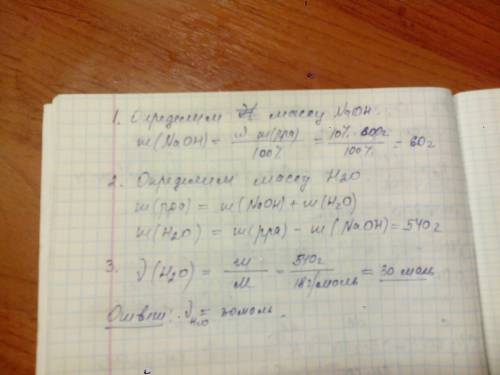 1. Определим массу NaOH:
m(NaOH) = ω · m(рра) / 100% = 10% · 600г / 100% = 60г
2. Определим массу H2O
m(рра) = m(NaOH) + m(H2O)
m(H2O) = m(рра) - m(NaOH) = 540г
3. ν(H2O) = m / M = 540г / 18г/моль = 30 моль
Ответ: ν H2O = 30моль.